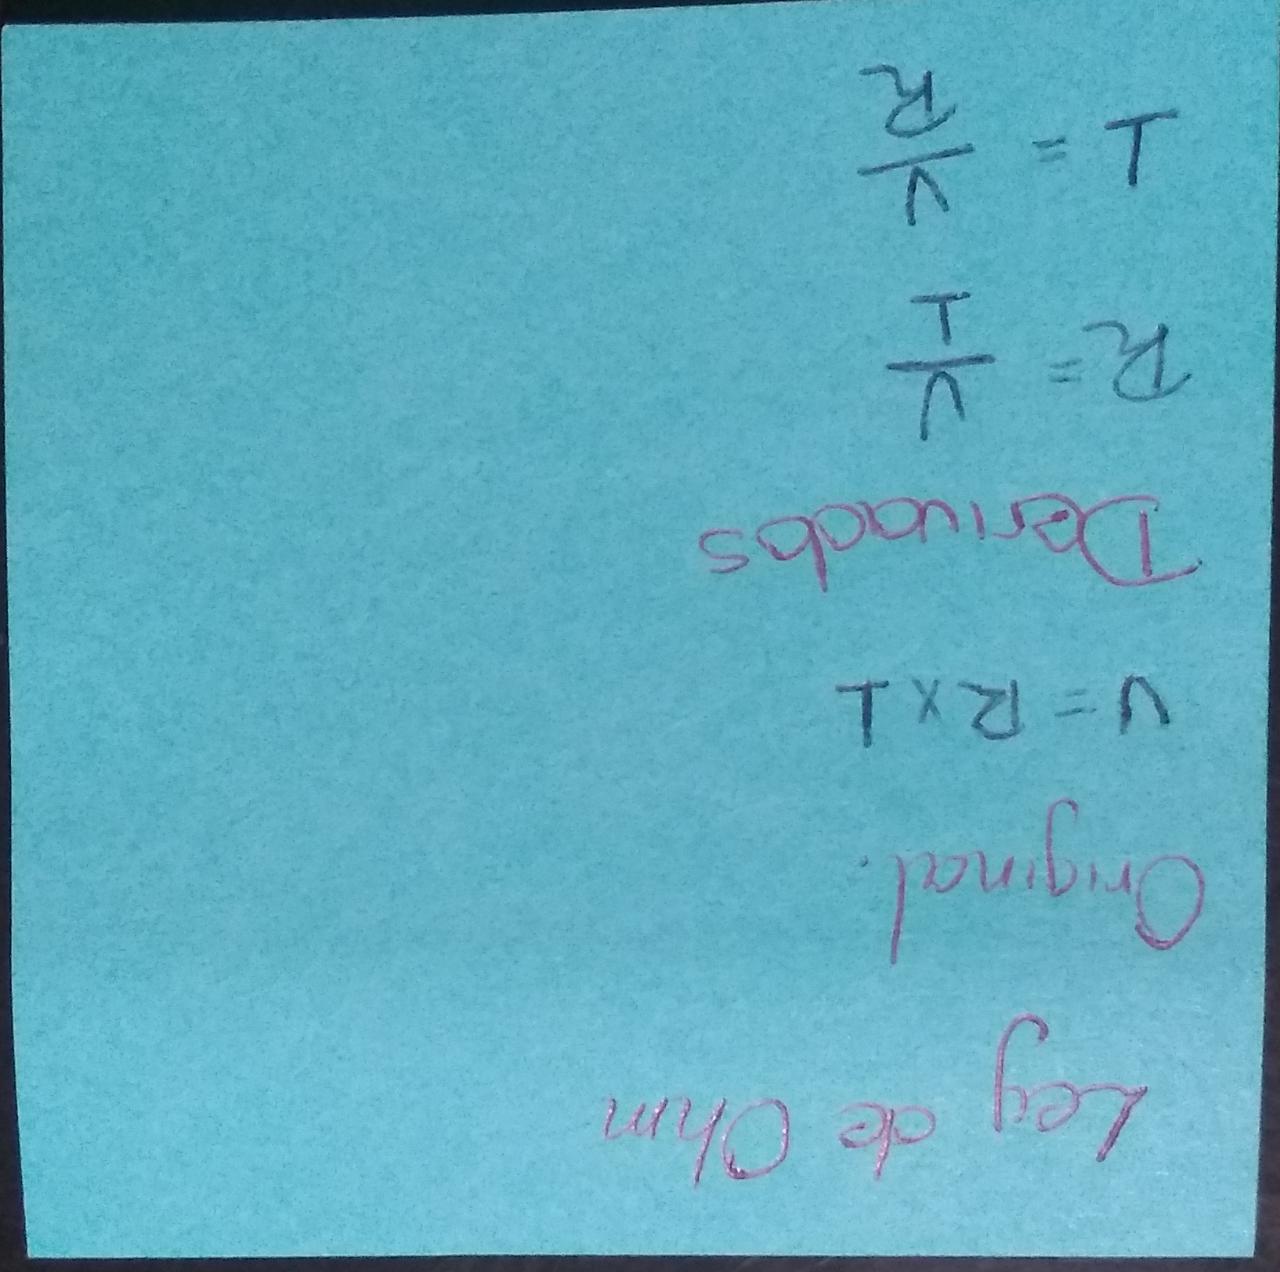 Ley de Ohm
Original.
V = R x I
Derivados
R = V/I
I = V/R